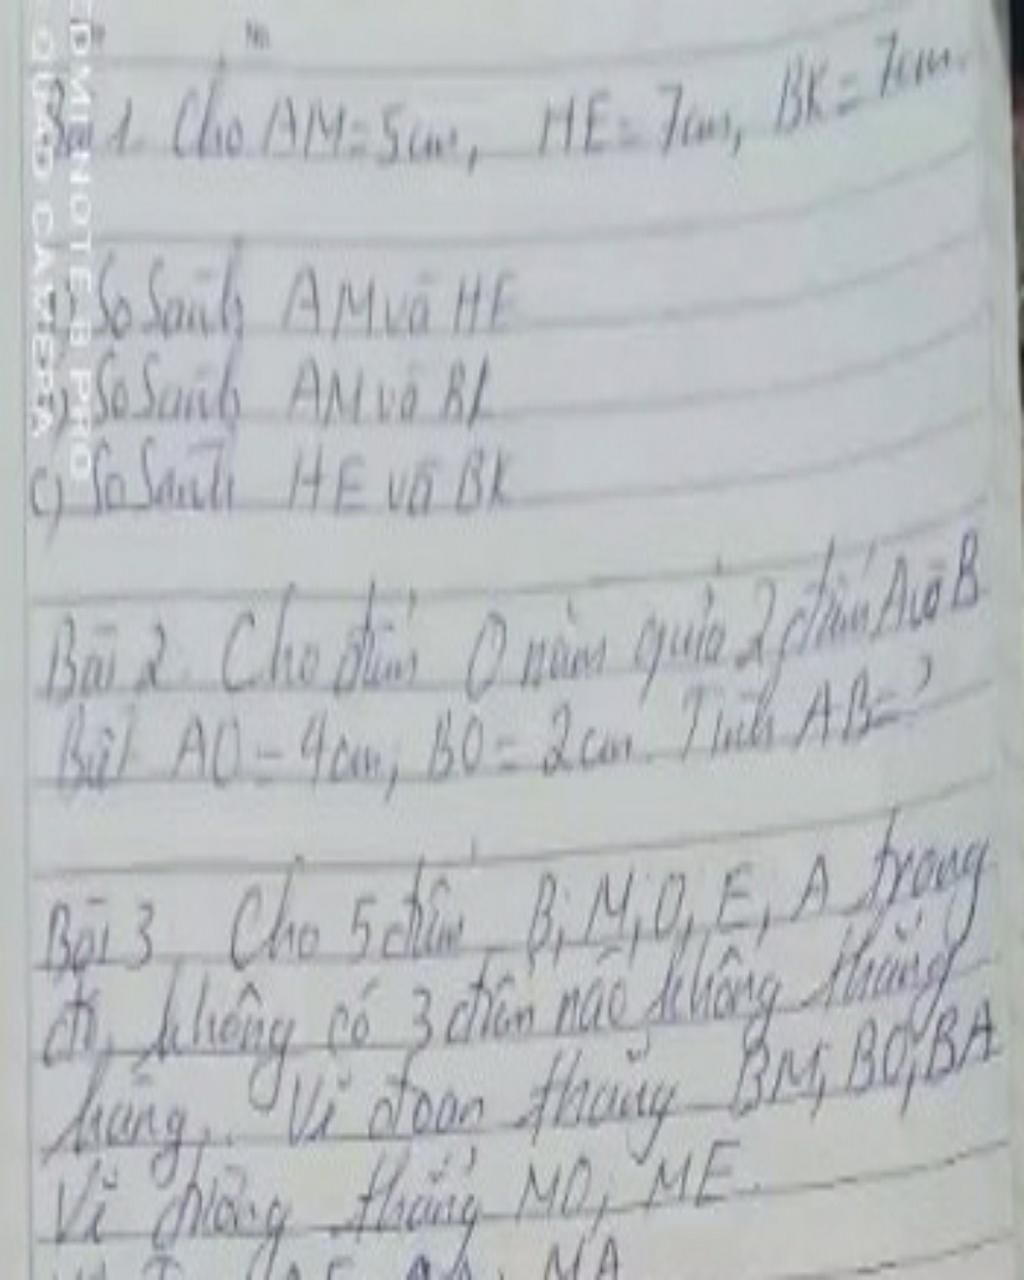 Bài 1. Cho AM = 5cm, HE = 7cm, BK = 7cm.
So Sánh AM và HE
So Sánh AM và BK
c) So Sánh HE và BK
Bài 2. Cho điểm O nằm giữa 2 điểm A và B
Biết AO = 4cm, BO = 2cm. Tính AB = ?
Bài 3. Cho 5 điểm B, M, O, E, A trong
đó, không có 3 điểm nào không thẳng
hàng. Vẽ đoạn thẳng BM, BO, BA
Vẽ đường thẳng MO, ME.
MA
REDMI NOTE 8 PRO
QUAD CAMERA